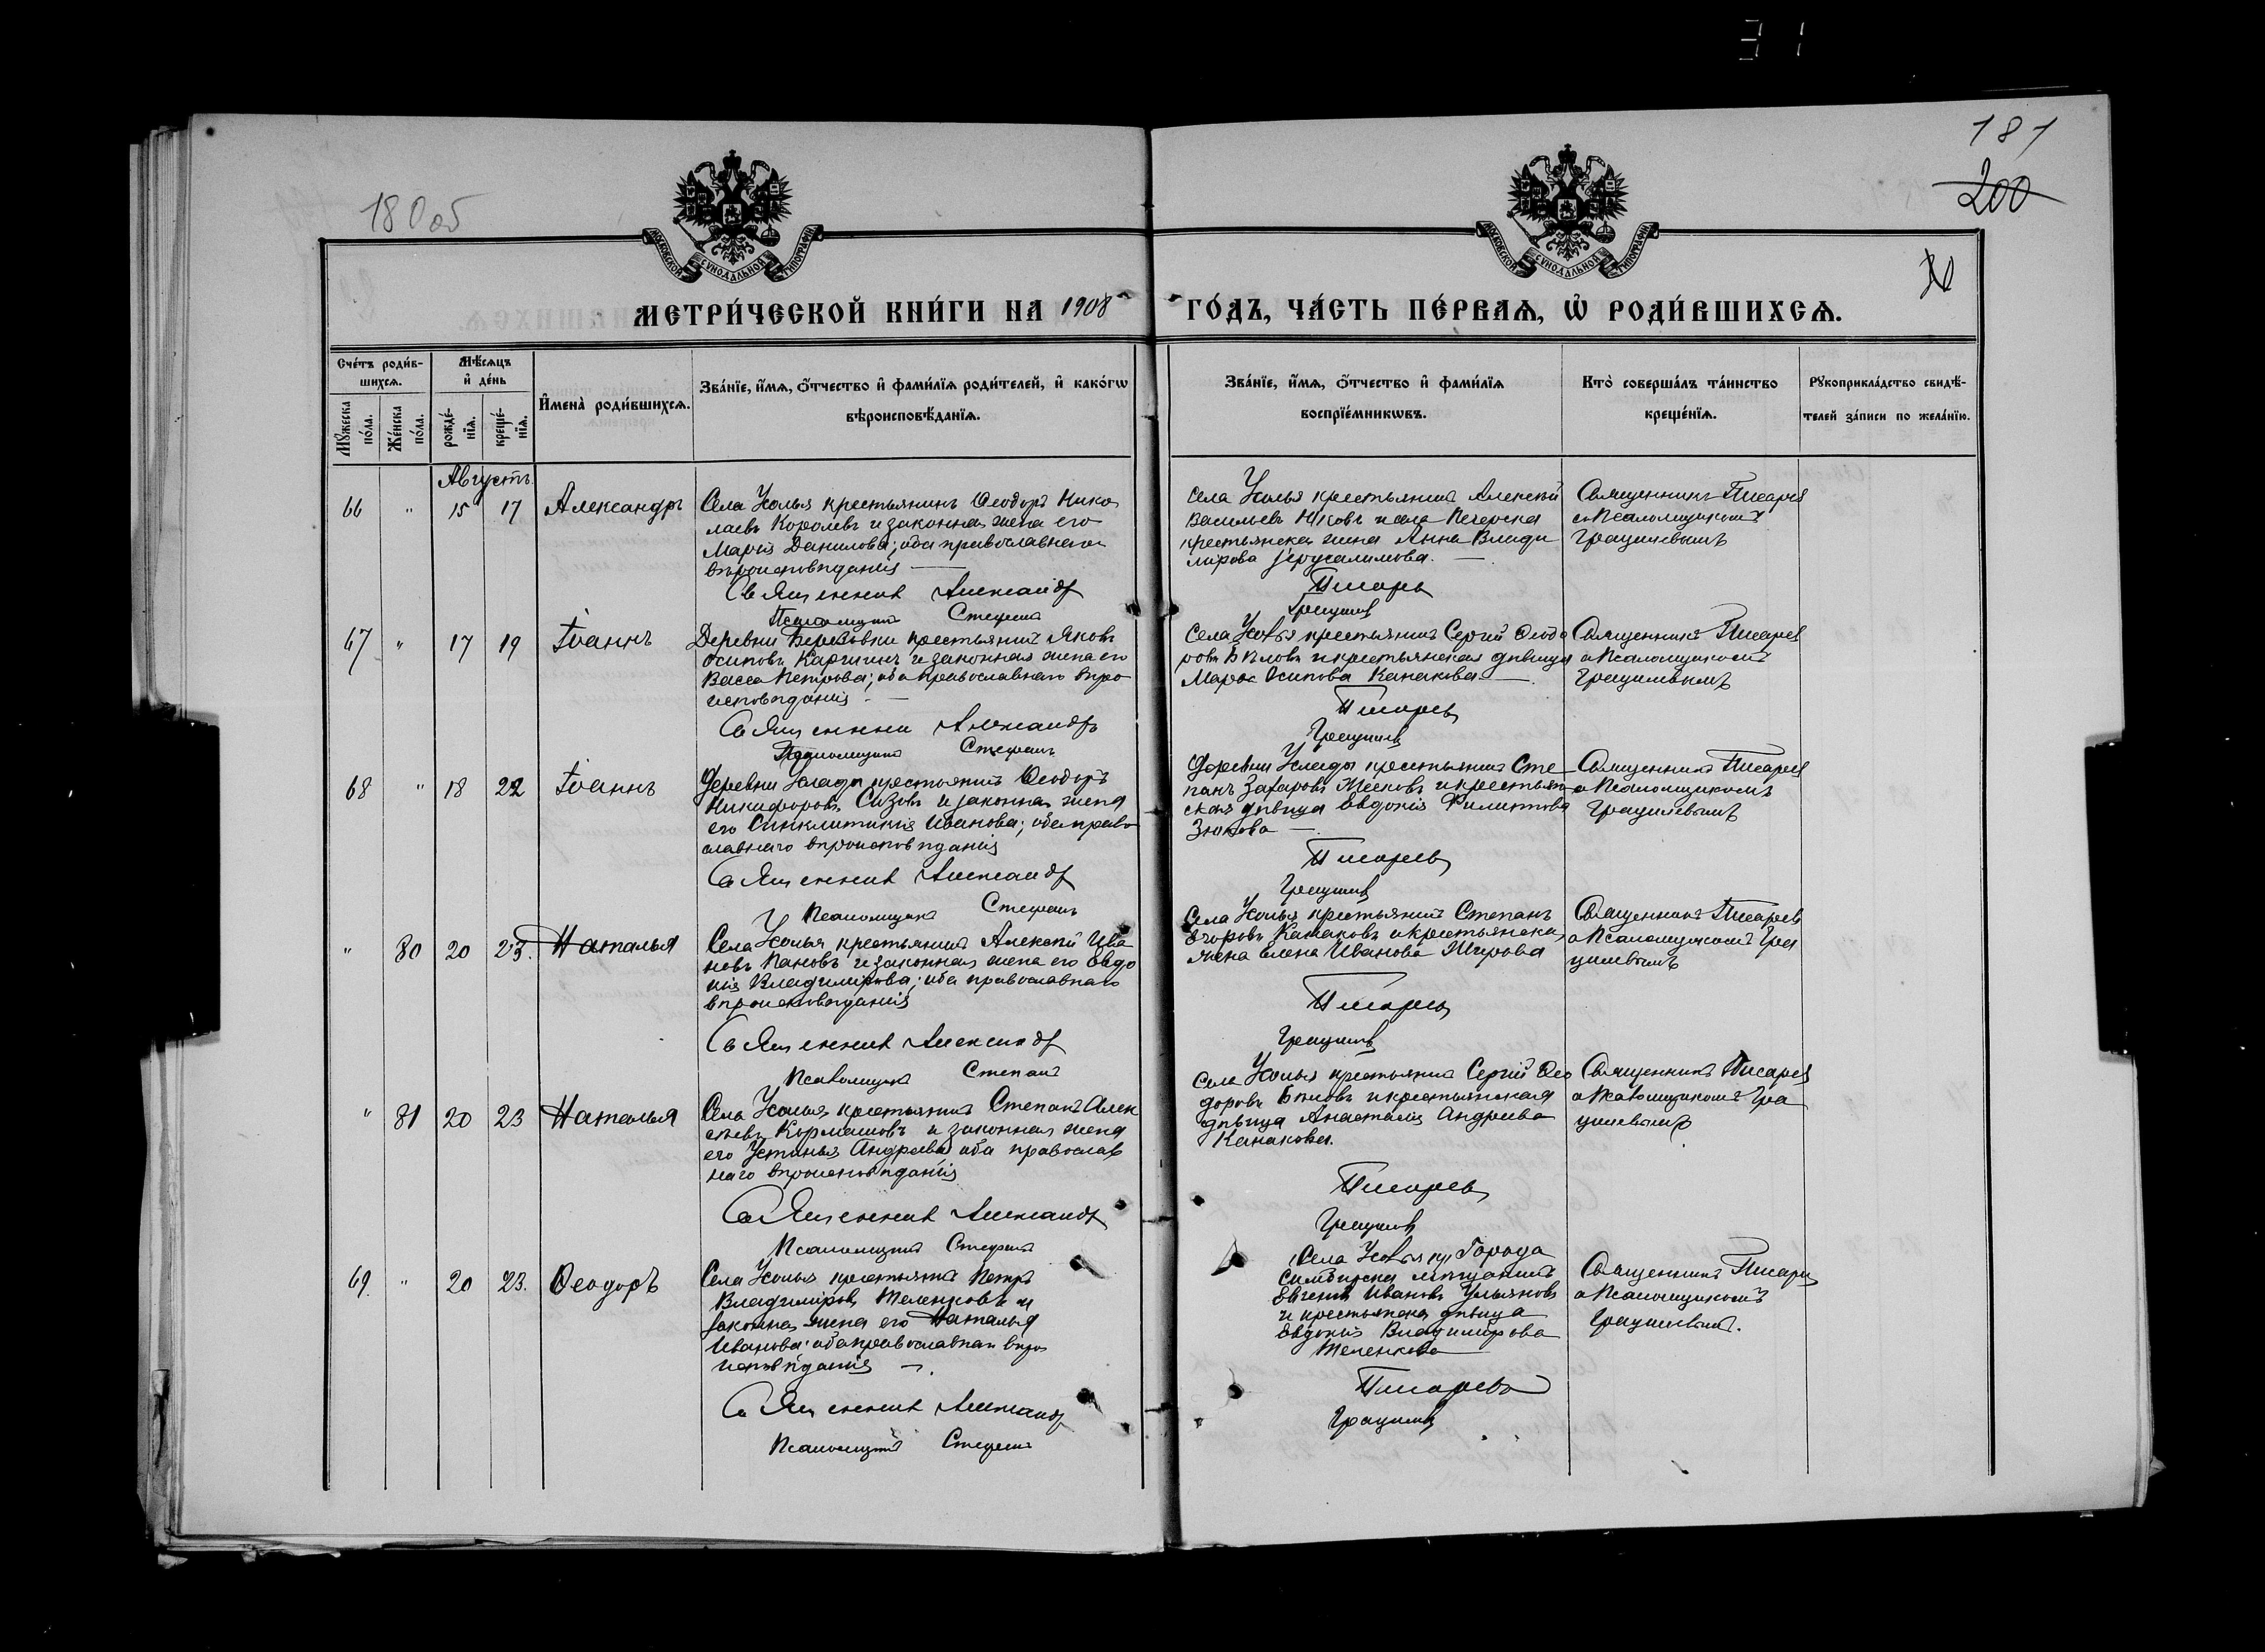 31
181
200
180 об
МОСКОВСКОЙ СѴНОДАЛЬНОЙ ТИПОГРАФІИ
МОСКОВСКОЙ СѴНОДАЛЬНОЙ ТИПОГРАФІИ
МЕТРИ́ЧЕСКОЙ КНИ́ГИ НА 1908
ГО́ДЪ, ЧА́СТЬ ПЕ́РВАѦ, Ѡ҆ РОДИ́ВШИХСѦ.
Сче́тъ роди́в-
шихсѧ.
Мꙋ́жеска по́ла.
Же́нска по́ла.
Мѣ́сѧцъ и҆ де́нь
рожде́-нїѧ.
креще́-нїѧ.
И҆мена̀ роди́вшихсѧ.
Зва́нїе, и҆́мѧ, ѻ҆́тчество и҆ фами́лїѧ роди́телей, и҆ како́гѡ
вѣроисповѣ́данїѧ.
Зва́нїе, и҆́мѧ, ѻ҆́тчество и҆ фами́лїѧ
воспрїе́мникѡвъ.
Кто̀ соверша́лъ та́инство
креще́нїѧ.
Рꙋкоприкла́дство свидѣ́-
телей за́писи по жела́нїю.
Августъ.
66 " 15 17 Александръ
Села Усолья крестьянинъ Ѳеодоръ Нико
лаевъ Королевъ и законная жена его
Марія Данилова; оба православнаго
вѣроисповѣданія
Священникъ Александръ
Псаломщикъ Стефанъ
Села Усолья крестьянинъ Алексѣй
Васильевъ и села Печерска
крестьянская жена Анна Влади
мірова Іерусалимова.
Писарев
Грацилевъ
Священникъ Писарев
съ Псаломщикомъ
Грацилевымъ
67 " 17 19 Іоаннъ
Деревни Березовки крестьянинъ Яковъ
Осиповъ Каргинъ и законная жена его
Васса Петрова; оба православнаго вѣро
исповѣданія
Священникъ Александръ
Псаломщикъ Стефанъ
Села Усолья крестьянинъ Сергій Ѳеодо
ровъ Бѣловъ и крестьянская дѣвица
Марѳа Осипова Канакова
Писарев
Грацилевъ
Священникъ Писарев
с Псаломщикомъ
Грацилевымъ
68 " 18 22 Іоаннъ
Деревни крестьянинъ Ѳеодоръ
Никифоровъ Сизовъ и законная жена
его Синклитикія Иванова; оба право
славнаго вѣроисповѣданія
Священникъ Александръ
Псаломщикъ Стефанъ
Деревни крестьянинъ Сте
панъ Захаровъ и крестьян
ская дѣвица Евдокія Филиппова
Зюкова
Писарев
Грацилевъ
Священникъ Писарев
с Псаломщикомъ
Грацилевымъ
" 80 20 23. Наталья
Села Усолья крестьянинъ Алексѣй Ива
новъ Пановъ и законная жена его Евдо
кія Владимірова; оба православнаго
вѣроисповѣданія
Священникъ Александръ
Псаломщикъ Степанъ
Села Усолья крестьянинъ Степанъ
Егоровъ Канаковъ и крестьянская
жена Елена Иванова
Писарев
Грацилевъ
Священникъ Писарев
с Псаломщикомъ Гра
цилевымъ
" 81 20 23 Наталья
Села Усолья крестьянинъ Степанъ Алек
сѣевъ Кормашовъ и законная жена
его Устинья Андреева оба православ
наго вѣроисповѣданія
Священникъ Александръ
Псаломщикъ Стефанъ
Села Усолья крестьянинъ Сергій Ѳео
доровъ Бѣловъ и крестьянская
дѣвица Анастасія Андреева
Канакова.
Писарев
Грацилевъ
Священникъ Писарев
с Псаломщикомъ Гра
цилевымъ
69. " 20 23. Ѳеодоръ
Села Усолья крестьянинъ Петръ
Владиміровъ Теленковъ и
законная жена его Наталья
Иванова; оба православнаго вѣро
исповѣданія
Священникъ Александръ
Псаломщикъ Стефанъ
Села Усолья Города
Симбирска мѣщанинъ
Евгеній Ивановъ Ульяновъ
и крестьянская дѣвица
Евдокія Владимірова
Теленкова
Писарев
Грацилевъ
Священникъ Писарев
с Псаломщикомъ
Грацилевымъ.